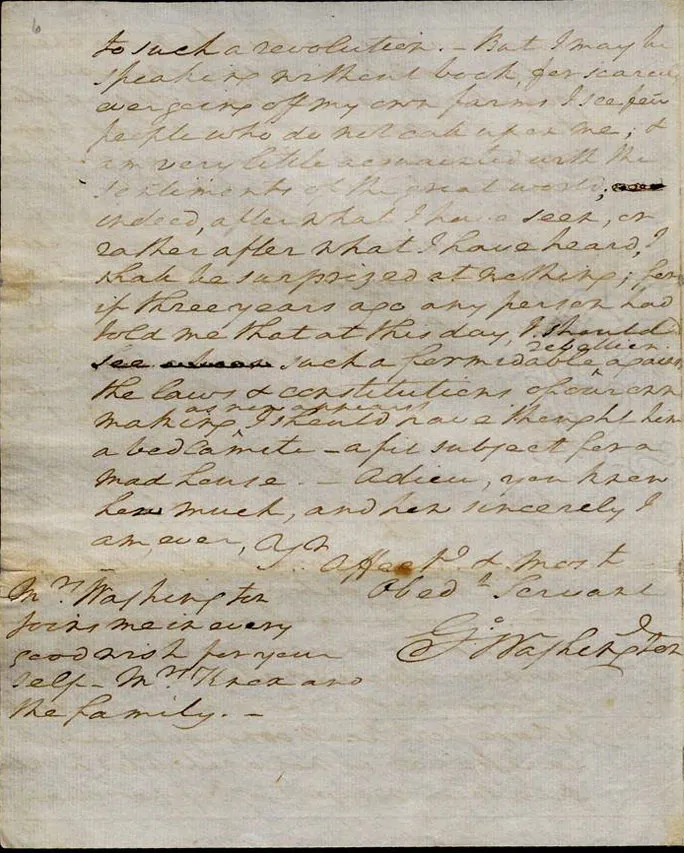 6
to such a revolution. – But I may be
speaking without book, for scarce
ever going off my own farms I see few
people who do not call upon me; &
am very little acquainted with the
sentiments of the great world;
indeed, after what I have seen, or
rather after what I have heard, I
shall be surprized at nothing; for
if three years ago any person had
told me that at this day, I should
rebellion
see such a formidable ^ against
the laws & constitutions of our own
as now appears
making ^ I should have thought him
a bedlamite – a fit subject for a
mad house. – Adieu, you know
how much, and how sincerely I
am, ever, Yr
Affecte. & most
Obedt. Servant
Go. Washington
Mrs. Washington
joins me in every
good wish for your
self – Mrs. Knox and
the family. –